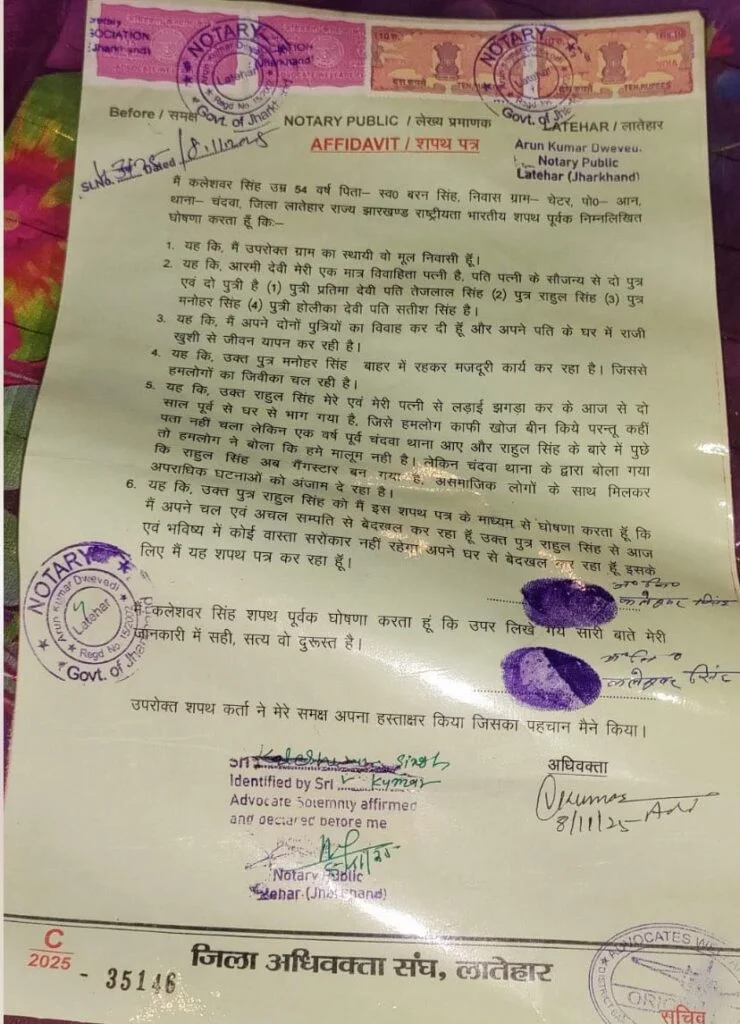 NOTARY
Arun Kumar Dwevedi
Latehar
Regd No. 15/2002
Govt. of Jharkhand
NOTARY
Latehar
Govt. of Jh
TEN RUPEES
Before / समक्ष
NOTARY PUBLIC / लेख्य प्रमाणक
LATEHAR / लातेहार
AFFIDAVIT / शपथ पत्र
Arun Kumar Dwevedi
Notary Public
Latehar (Jharkhand)
SL.No. Dated 8/11/2025
मैं कलेशवर सिंह उम्र 54 वर्ष पिता– स्व0 बरन सिंह, निवास ग्राम– चेटर, पो0– आन,
थाना– चंदवा, जिला लातेहार राज्य झारखण्ड राष्ट्रीयता भारतीय शपथ पूर्वक निम्नलिखित
घोषणा करता हूँ कि:–
1. यह कि, मैं उपरोक्त ग्राम का स्थायी वो मूल निवासी हूँ।
2. यह कि, आरमी देवी मेरी एक मात्र विवाहिता पत्नी है, पति पत्नी के सौजन्य से दो पुत्र
एवं दो पुत्री है (1) पुत्री प्रतिमा देवी पति तेजलाल सिंह (2) पुत्र राहुल सिंह (3) पुत्र
मनोहर सिंह (4) पुत्री होलीका देवी पति सतीश सिंह है।
3. यह कि, मैं अपने दोनों पुत्रियों का विवाह कर दी हूँ और अपने पति के घर में राजी
खुशी से जीवन यापन कर रही है।
4. यह कि, उक्त पुत्र मनोहर सिंह बाहर में रहकर मजदूरी कार्य कर रहा है। जिससे
हमलोगों का जिवीका चल रही है।
5. यह कि, उक्त राहुल सिंह मेरे एवं मेरी पत्नी से लड़ाई झगड़ा कर के आज से दो
साल पूर्व से घर से भाग गया है, जिसे हमलोग काफी खोज बीन किये परन्तू कहीं
पता नही चला लेकिन एक वर्ष पूर्व चंदवा थाना आए और राहुल सिंह के बारे में पुछे
तो हमलोग ने बोला कि हमे मालूम नही है। लेकिन चंदवा थाना के द्वारा बोला गया
कि राहुल सिंह अब गैंगस्टार बन गया है, असमाजिक लोगों के साथ मिलकर
अपराधिक घटनाओं को अंजाम दे रहा है।
6. यह कि, उक्त पुत्र राहुल सिंह को मैं इस शपथ पत्र के माध्यम से घोषणा करता हूँ कि
मैं अपने चल एवं अचल सम्पति से बेदखल कर रहा हूँ उक्त पुत्र राहुल सिंह से आज
एवं भविष्य में कोई वास्ता सरोकार नहीं रहेगा अपने घर से बेदखल कर रहा हूँ इसके
लिए मैं यह शपथ पत्र कर रहा हूँ।
कलेश्वर सिंह
NOTARY
Arun Kumar Dwevedi
Latehar
Regd No 15/2002
Govt. of Jhar
मैं कलेशवर सिंह शपथ पूर्वक घोषणा करता हूं कि उपर लिखे गये सारी बाते मेरी
जानकारी में सही, सत्य वो दुरूस्त है।
कलेश्वर सिंह
उपरोक्त शपथ कर्ता ने मेरे समक्ष अपना हस्ताक्षर किया जिसका पहचान मैने किया।
Sri Kaleshwar Singh
Identified by Sri V. Kumar
Advocate Solemnly affirmed
and declared before me
Notary Public
Latehar (Jharkhand)
अधिवक्ता
VKumar
8/11/25 Adv
C
2025 - 35146
जिला अधिवक्ता संघ, लातेहार
ADVOCATES
सचिव